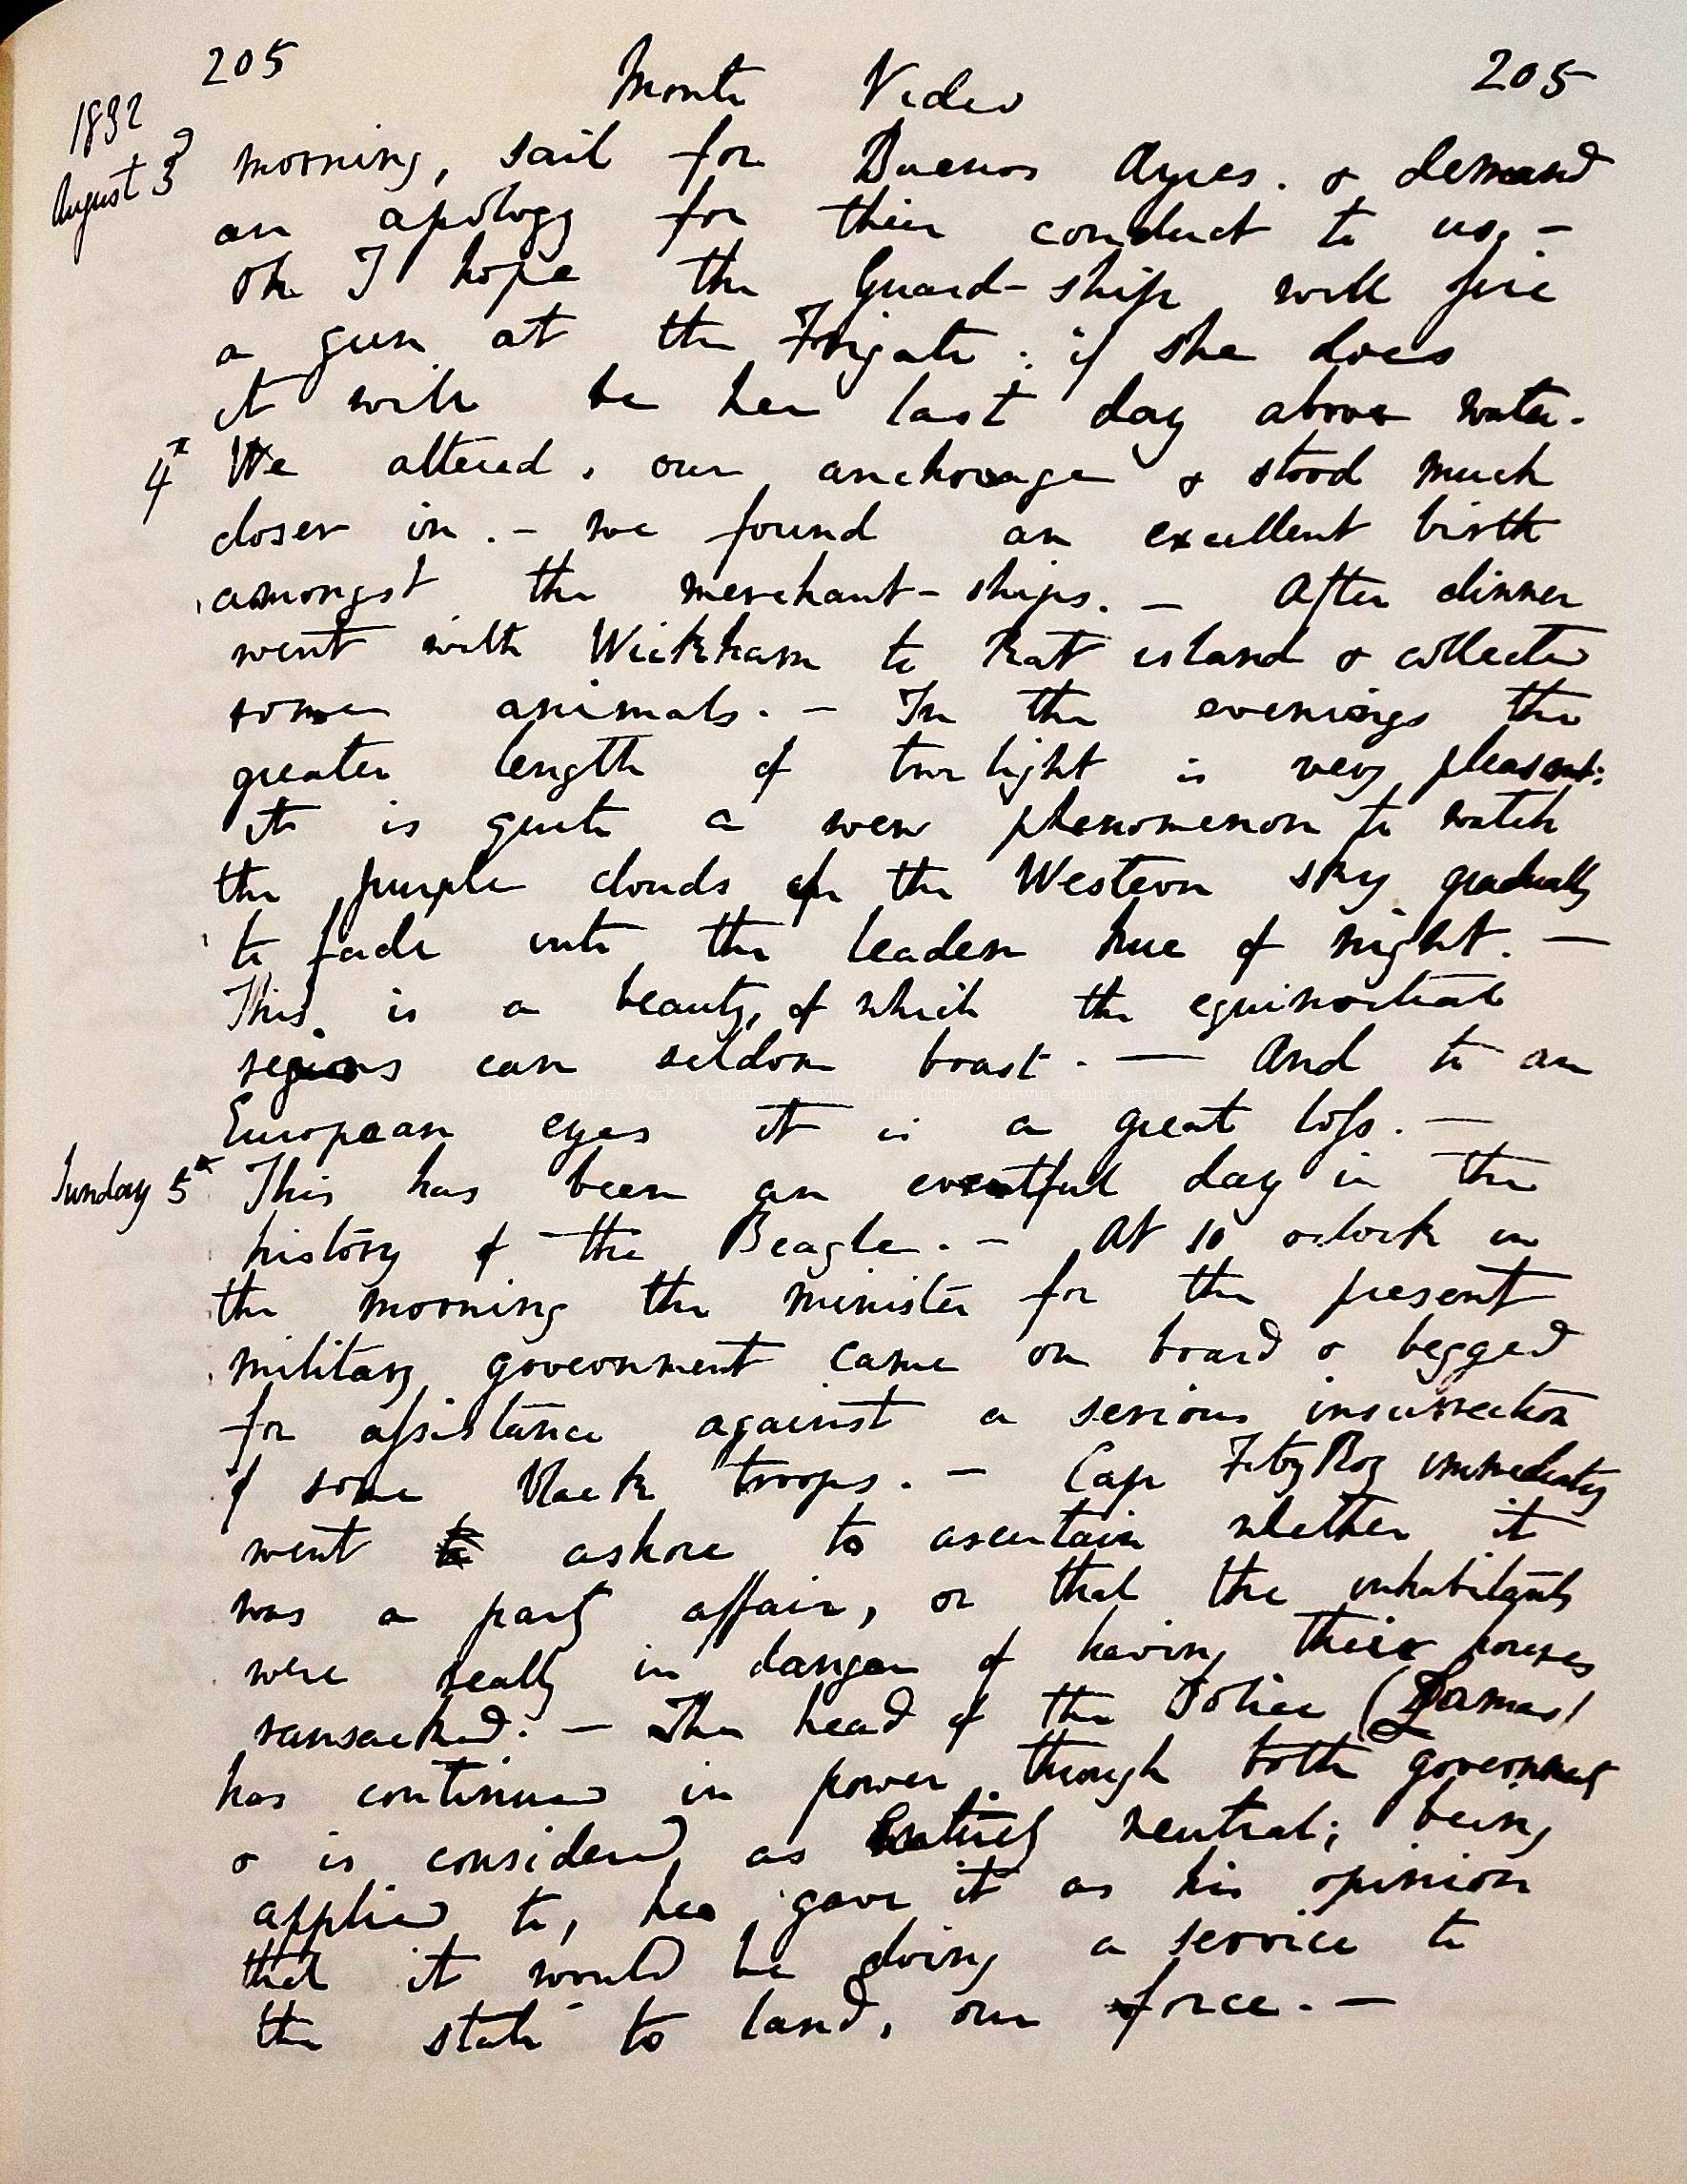 205 Monte Video 205
1832
August 3d morning, sail for Buenos Ayres. & demand
an apology for their conduct to us. —
Oh I hope the Guard-ship will fire
a gun at the Frigate: if she does
it will be her last day above water.
4th We altered, our anchorage & stood much
closer in. — we found an excellent birth
amongst the merchant-ships. — After dinner
went with Wickham to Rat island & collected
some animals. — In the evenings the
greater length of twilight is very pleasant:
it is quite a new phenomenon to watch
the purple clouds of the Western sky gradually
to fade into the leaden hue of night. —
This is a beauty, of which the equinoctial
regions can seldom boast. — And to an
European eyes it is a great loss. —
Sunday 5th This has been an eventful day in the
history of the Beagle. — At 10 oclock in
the morning the minister for the present
military government came on board & begged
for assistance against a serious insurrection
of some black troops. — Cap FitzRoy immediately
went ashore to ascertain whether it
was a party affair, or that the inhabitants
were really in danger of having their houses
ransacked. — The head of the Police (Damas)
has continued in power through both governments
& is considered as entirely neutral; being
applied to, he gave it as his opinion
that it would be doing a service to
the state to land, our force. —